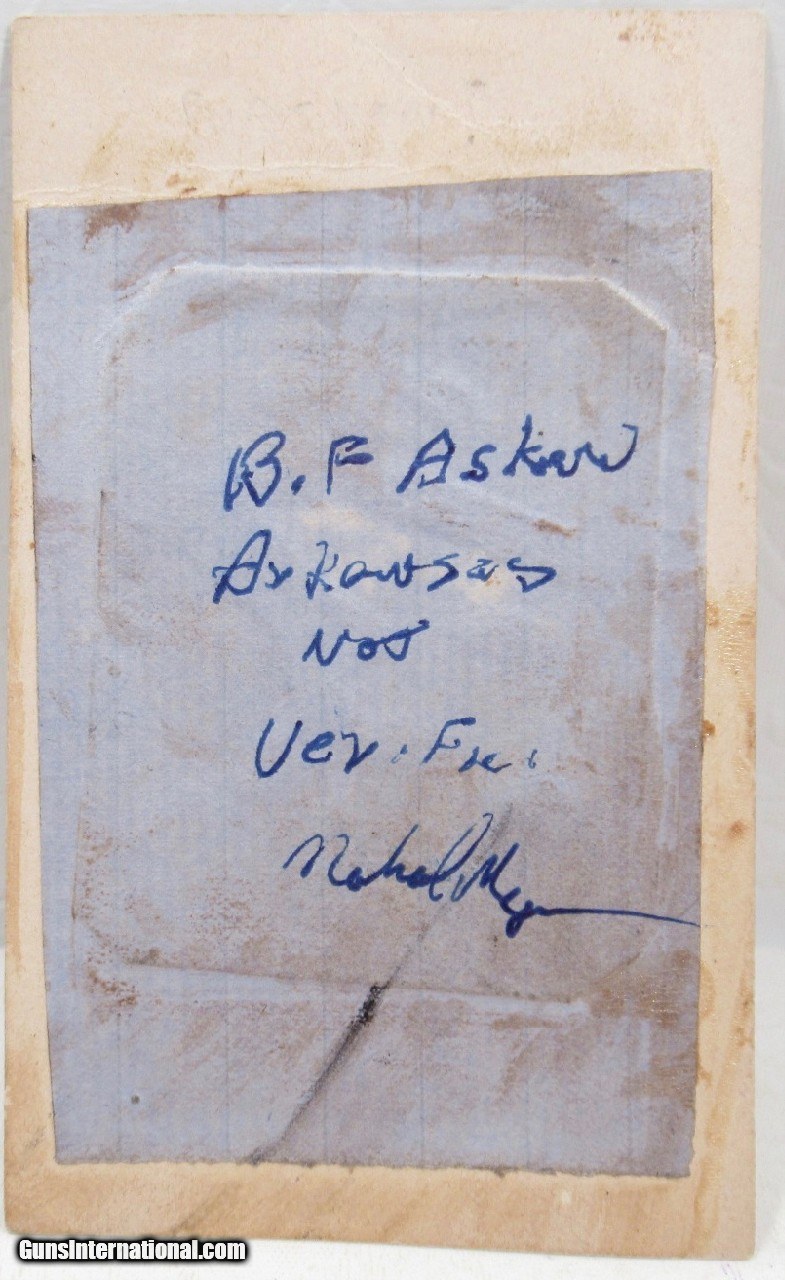 B. F Askew
Arkansas
Not
Ver. Fr.
GunsInternational.com